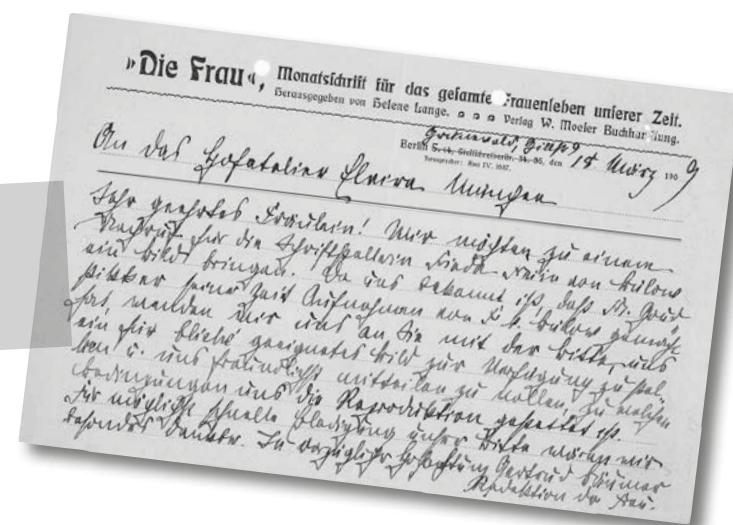 »Die Frau«, Monatsschrift für das gesamte Frauenleben unserer Zeit.
Herausgegeben von Helene Lange. Verlag W. Moeser Buchhandlung.
Berlin S. 14, Stallschreiberstr. 34. 35, den 15 März 1909
An das Hofatelier Elvira München
Sehr geehrtes Fräulein! Wir möchten zu einem
Nachruf für die Schriftstellerin Frieda Freiin von Bülow
ein Bild bringen. Da uns bekannt ist, daß Frl. Goud-
stikker seiner Zeit Aufnahmen von F. v. Bülow gemacht
hat, wenden wir uns an Sie mit der Bitte, uns
ein für Cliché geeignetes Bild zur Verfügung zu stel-
len u. uns freundlichst mitteilen zu wollen, zu welchen
Bedingungen uns die Reproduktion gestattet ist.
Für möglichst schnelle Erledigung unsrer Bitte wären wir
besonders dankbar. In vorzüglicher Hochachtung Gertrud Bäumer
Redaktion der Frau.